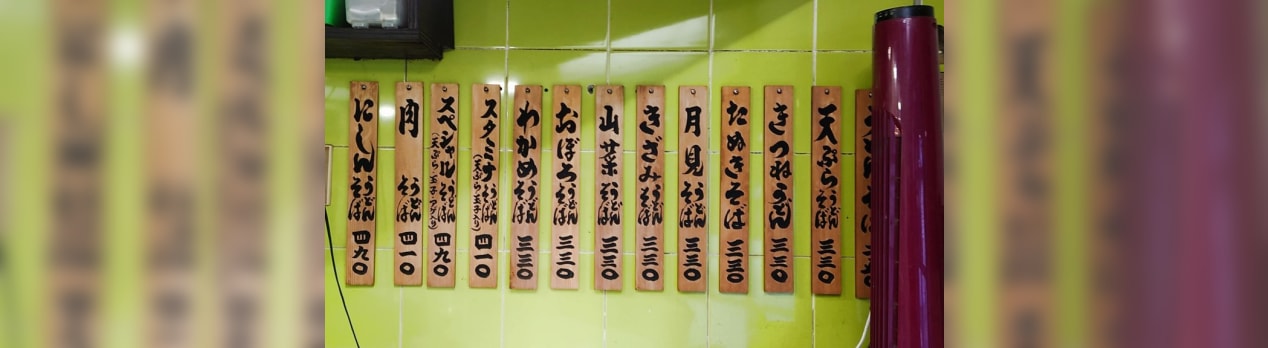 天ぷらうどんそば 三三〇
きつねうどん 三三〇
たぬきそば 三三〇
月見うどんそば 三三〇
きざみうどんそば 三三〇
山菜うどんそば 三三〇
おぼろうどんそば 三三〇
わかめうどんそば 三三〇
スタミナうどんそば 四一〇
スペシャルうどんそば 四九〇
肉うどんそば 四一〇
にしんうどんそば 四九〇